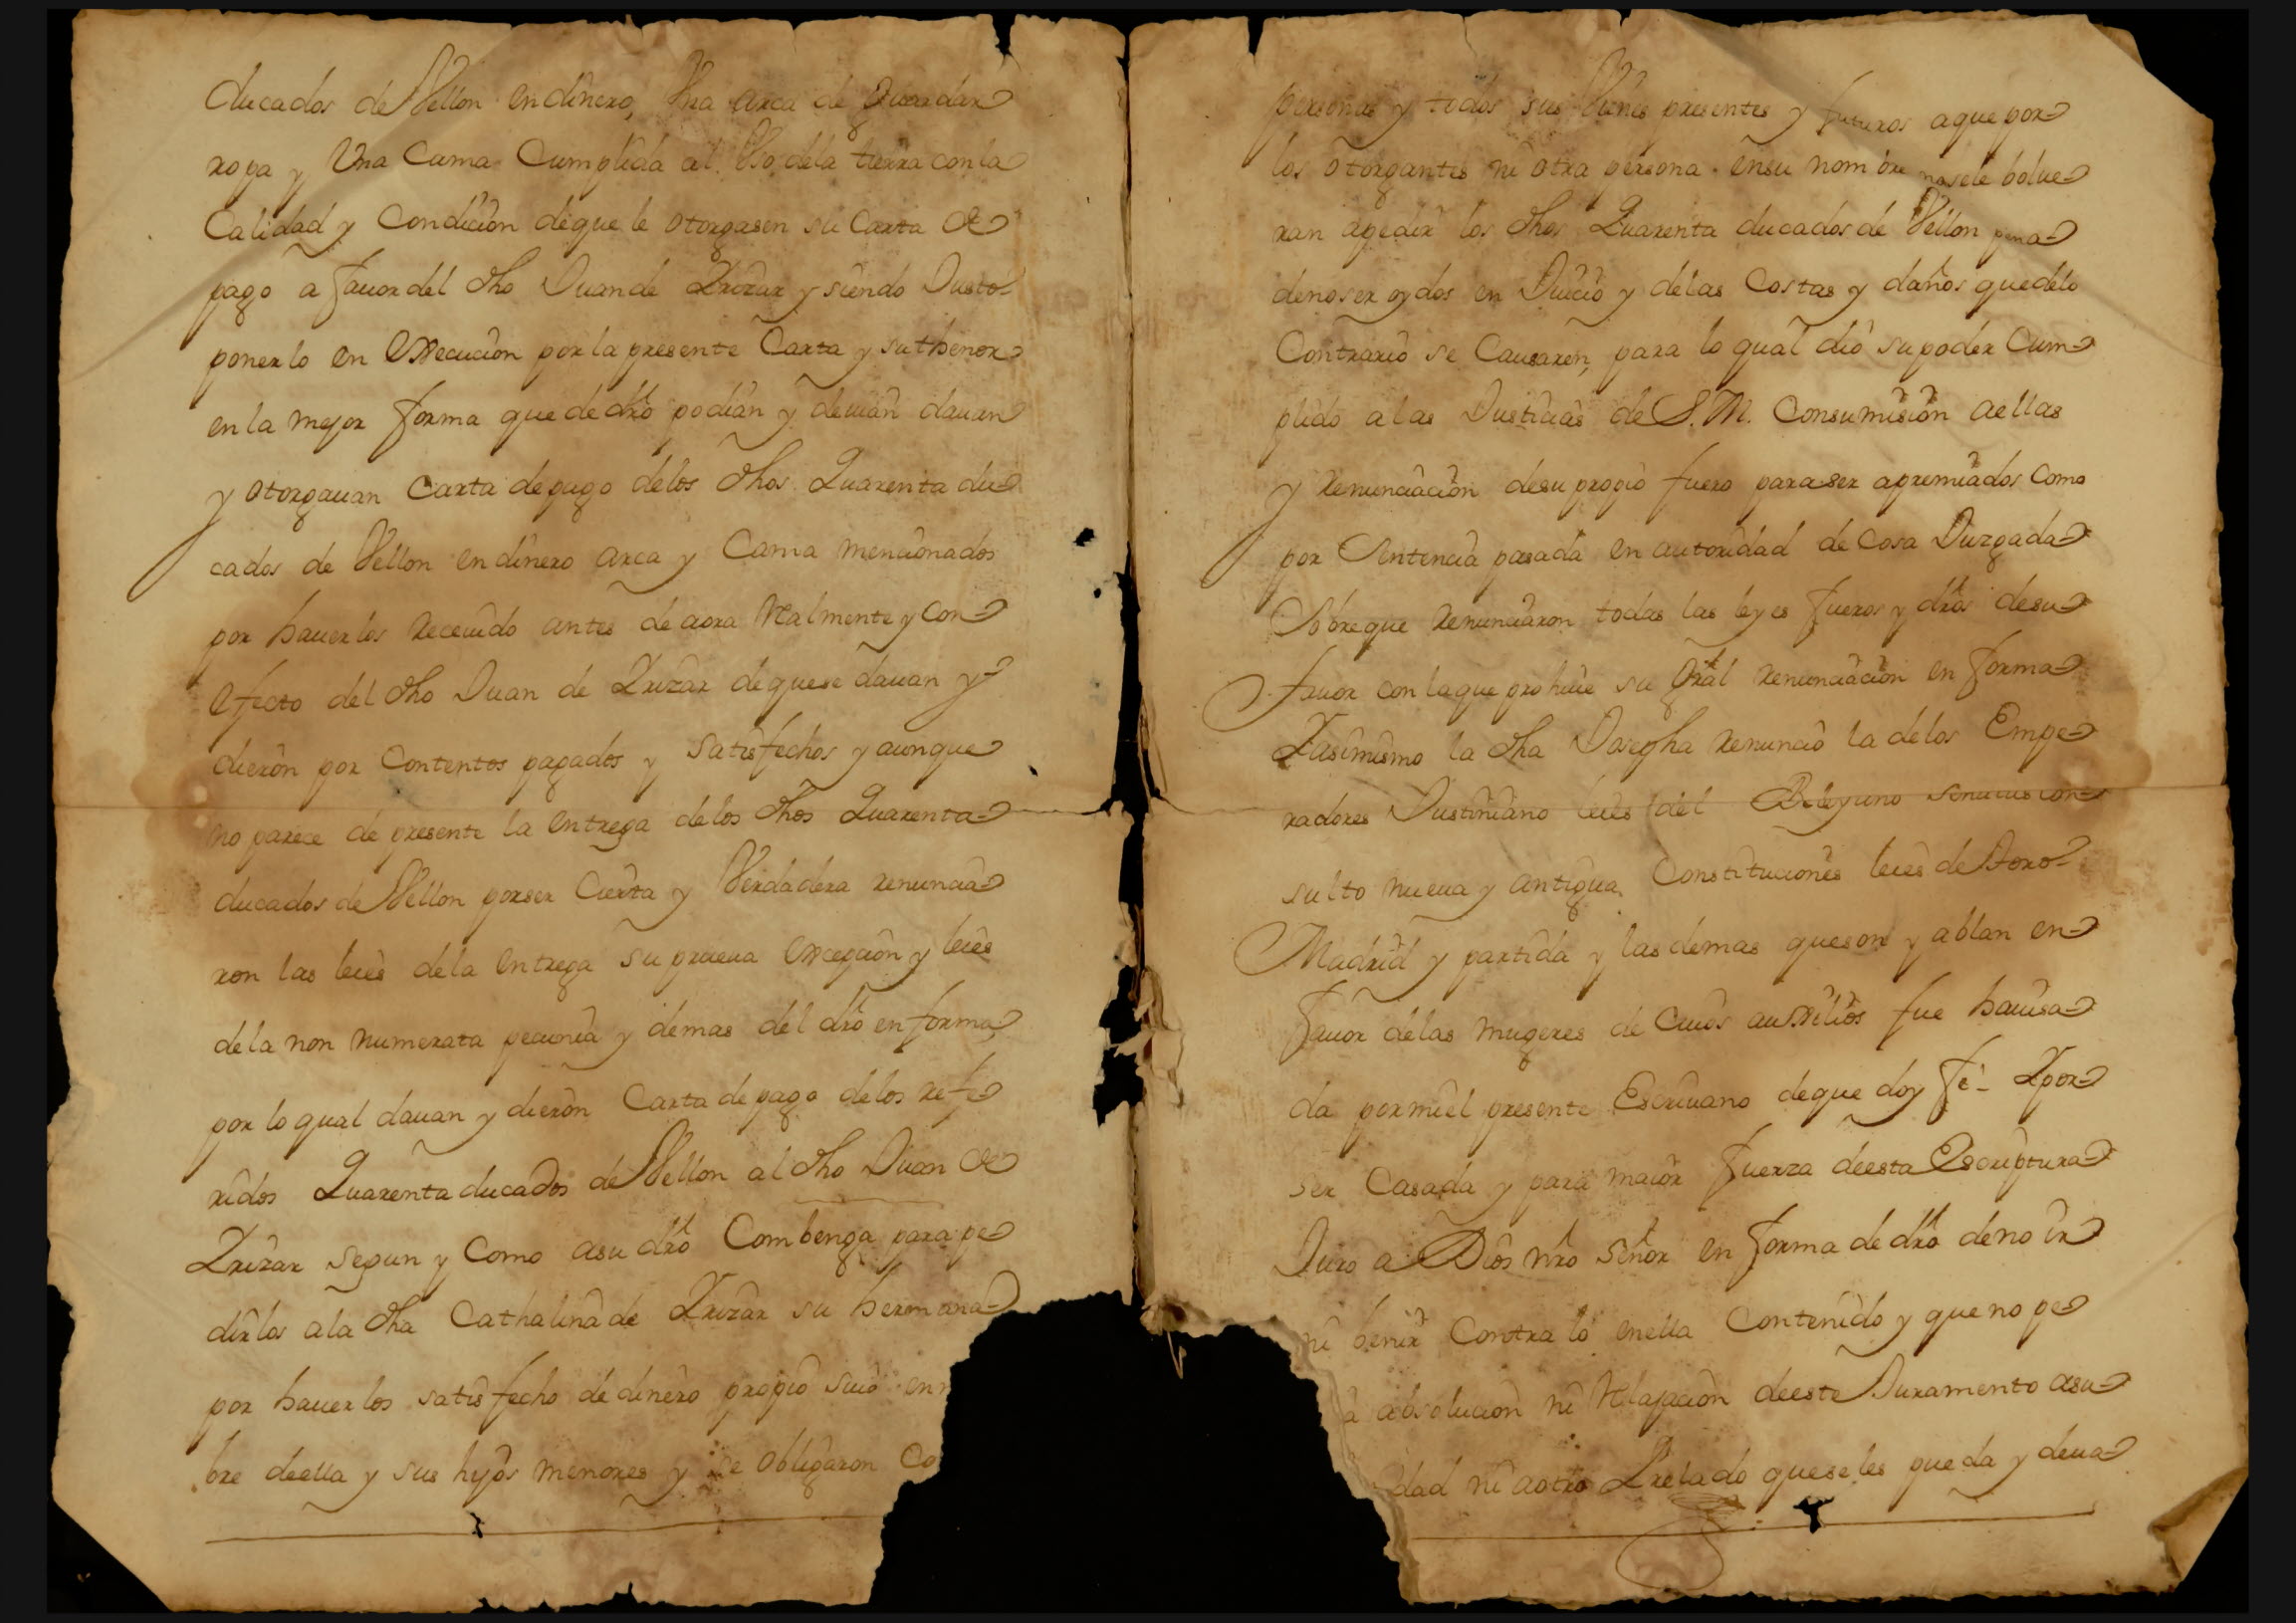 ducados de Vellon en dinero, Vna arca de Guardar
ropa y Vna Cama Cumplida al Vso dela tierra conla
Calidad y Condicion deque le otorgasen su Carta de
pago a fauor del dho Juan de Yrizar y siendo Justo
ponerlo en execucion por la presente Carta y su thenor
en la mejor forma que de dro podian y deuian dauan
y otorgauan Carta de pago delos dhos Quarenta du
cados de Vellon en dinero arca y Cama mencionados
por hauerlos Receuido antes de aora Realmente y con
efecto del dho Juan de Yrizar de que se dauan y
dieron por Contentos pagados y satisfechos y aunque
no parece de presente la entrega delos dhos Quarenta
ducados de Vellon por ser Cierta y Verdadera renuncia
ron las leies dela entrega su prueua excepcion y leies
dela non numerata pecunia y demas del dro en forma,
por lo qual dauan y dieron Carta de pago delos refe
ridos Quarenta ducados de Vellon al dho Juan de
Yrizar segun y Como asu dro Combenga para pe
dirlos ala dha Cathalina de Yrizar su hermana
por hauerlos satisfecho de dinero propio suio en n
bre deella y sus hijos menores y se obligaron Co
personas y todos sus Vienes presentes y futuros aque por
los otorgantes ni otra persona ensu nombre nosele bolue
ran apedir los dhos Quarenta ducados de Vellon pena
denoser oydos en Juicio y delas Costas y daños quedelo
Contrario se Causaren, para lo qual dio su poder Cum
plido alas Justicias de S.M. Consumision aellas
y Renunciacion desu propio fuero para ser apremiados como
por Sentencia pasada en autoridad de Cosa Juzgada
Sobreque Renunciaron todas las leyes fueros y dros desu
fauor con laque prohiue su Gral Renunciacion en forma
Yasimismo la dha Josepha Renuncio la delos Empe
radores Justiniano leies del Beleyano senatus con
sulto nueua y antigua Constituciones leies de Toro
Madrid y partida y las demas queson y ablan en
fauor delas mugeres de Cuios auxilios fue hauisa
da pormiel presente Escriuano deque doy fe - Ypor
ser Casada y para maior fuerza deesta Escriptura
Juro a Dios nro Señor en forma de dro deno ir
ni benir Contra lo enella Contenido y que no pe
a absolucion ni Relajacion deeste Juramento asu
dad ni aotro Prelado queseles pueda y deua